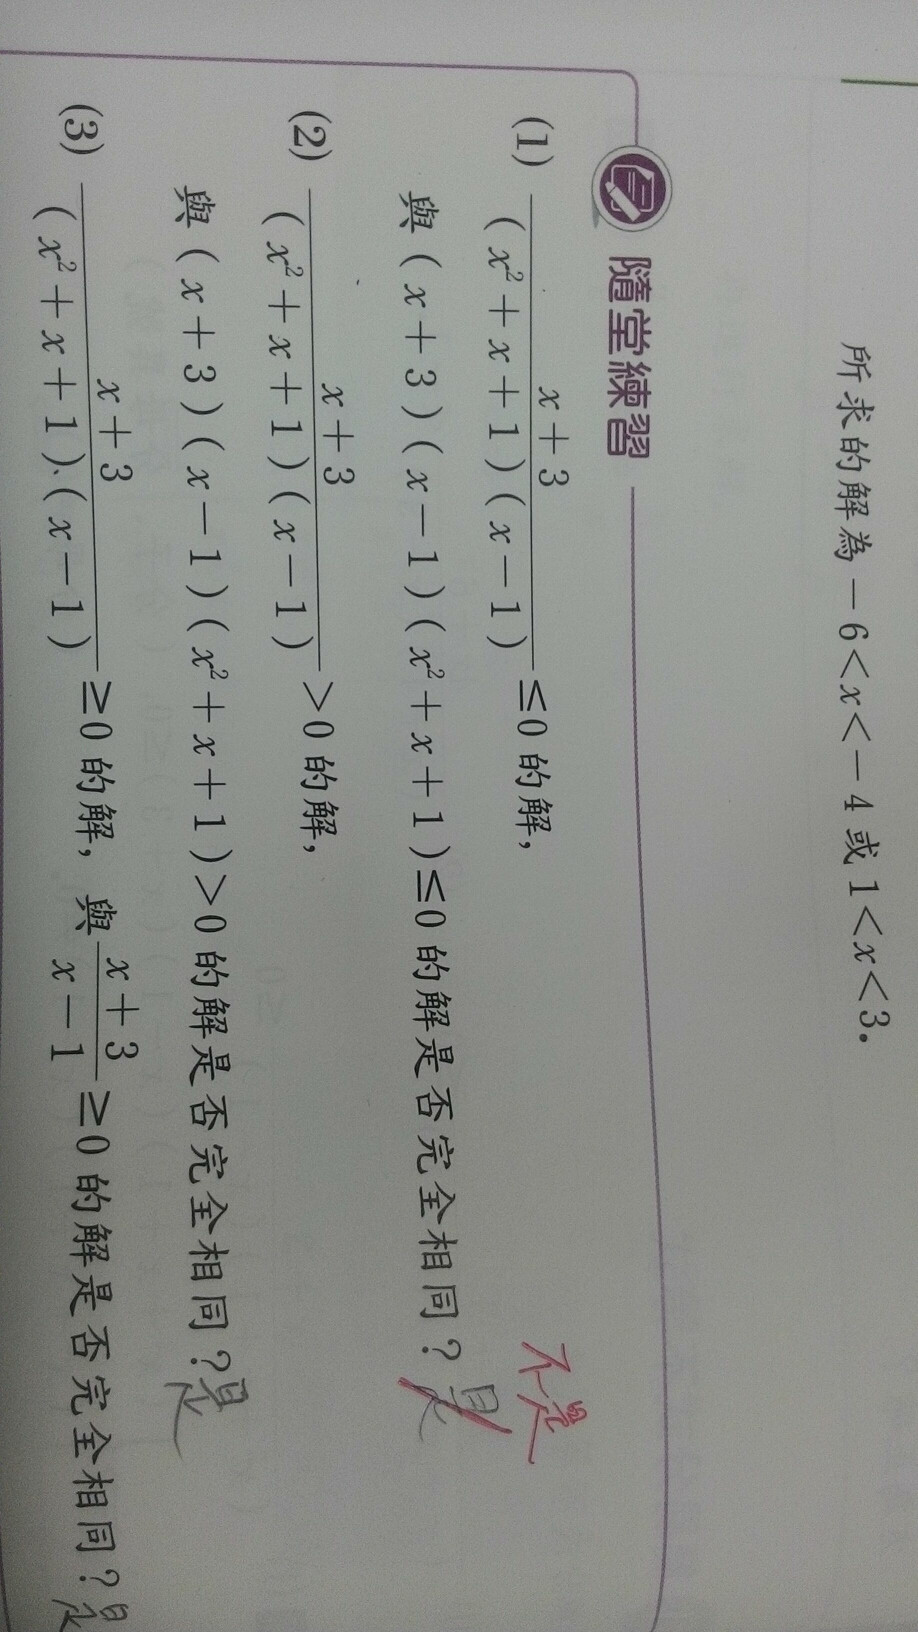 所求的解為－6＜x＜－4 或 1＜x＜3.
隨堂練習
(1) x＋3 / (x²＋x＋1)(x－1) ≤0 的解，
與(x＋3)(x－1)(x²＋x＋1)≤0 的解是否完全相同？是 不是
(2) x＋3 / (x²＋x＋1)(x－1) ＞0 的解，
與(x＋3)(x－1)(x²＋x＋1)＞0 的解是否完全相同？是
(3) x＋3 / (x²＋x＋1)(x－1) ≥0 的解，與 x＋3 / x－1 ≥0 的解是否完全相同？是